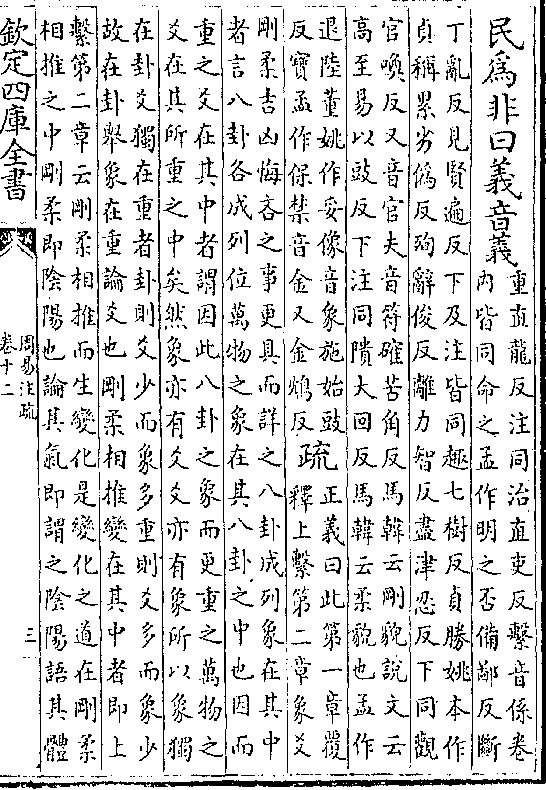 民為非曰義音義
重直龍反注同治直吏反繫音係卷
内皆同命之孟作明之否備鄙反斷
丁亂反見賢遍反下及注皆同趣七樹反貞勝姚本作
貞稱累劣偽反殉辭俊反離力智反盡津忍反下同觀
官喚反又音官夫音符確苦角反馬韓云剛貌說文云
高至易以豉反下注同隤大回反馬韓云柔貌也孟作
退陸董姚作妥像音象施始豉
反寳孟作保禁音金又金鴆反
疏
正義曰此第一章覆
釋上繫第二章象爻
剛柔吉凶悔吝之事更具而詳之八卦成列象在其中
者言八卦各成列位萬物之象在其八卦之中也因而
重之爻在其中者謂因此八卦之象而更重之萬物之
爻在其所重之中矣然象亦有爻爻亦有象所以象獨
在卦爻獨在重者卦則爻少而象多重則爻多而象少
故在卦舉象在重論爻也剛柔相推變在其中者即上
繫第二章云剛柔相推而生變化是變化之道在剛柔
相推之中剛柔即陰陽也論其氣即謂之陰陽語其體
欽定四庫全書
周易注疏
卷十二
三